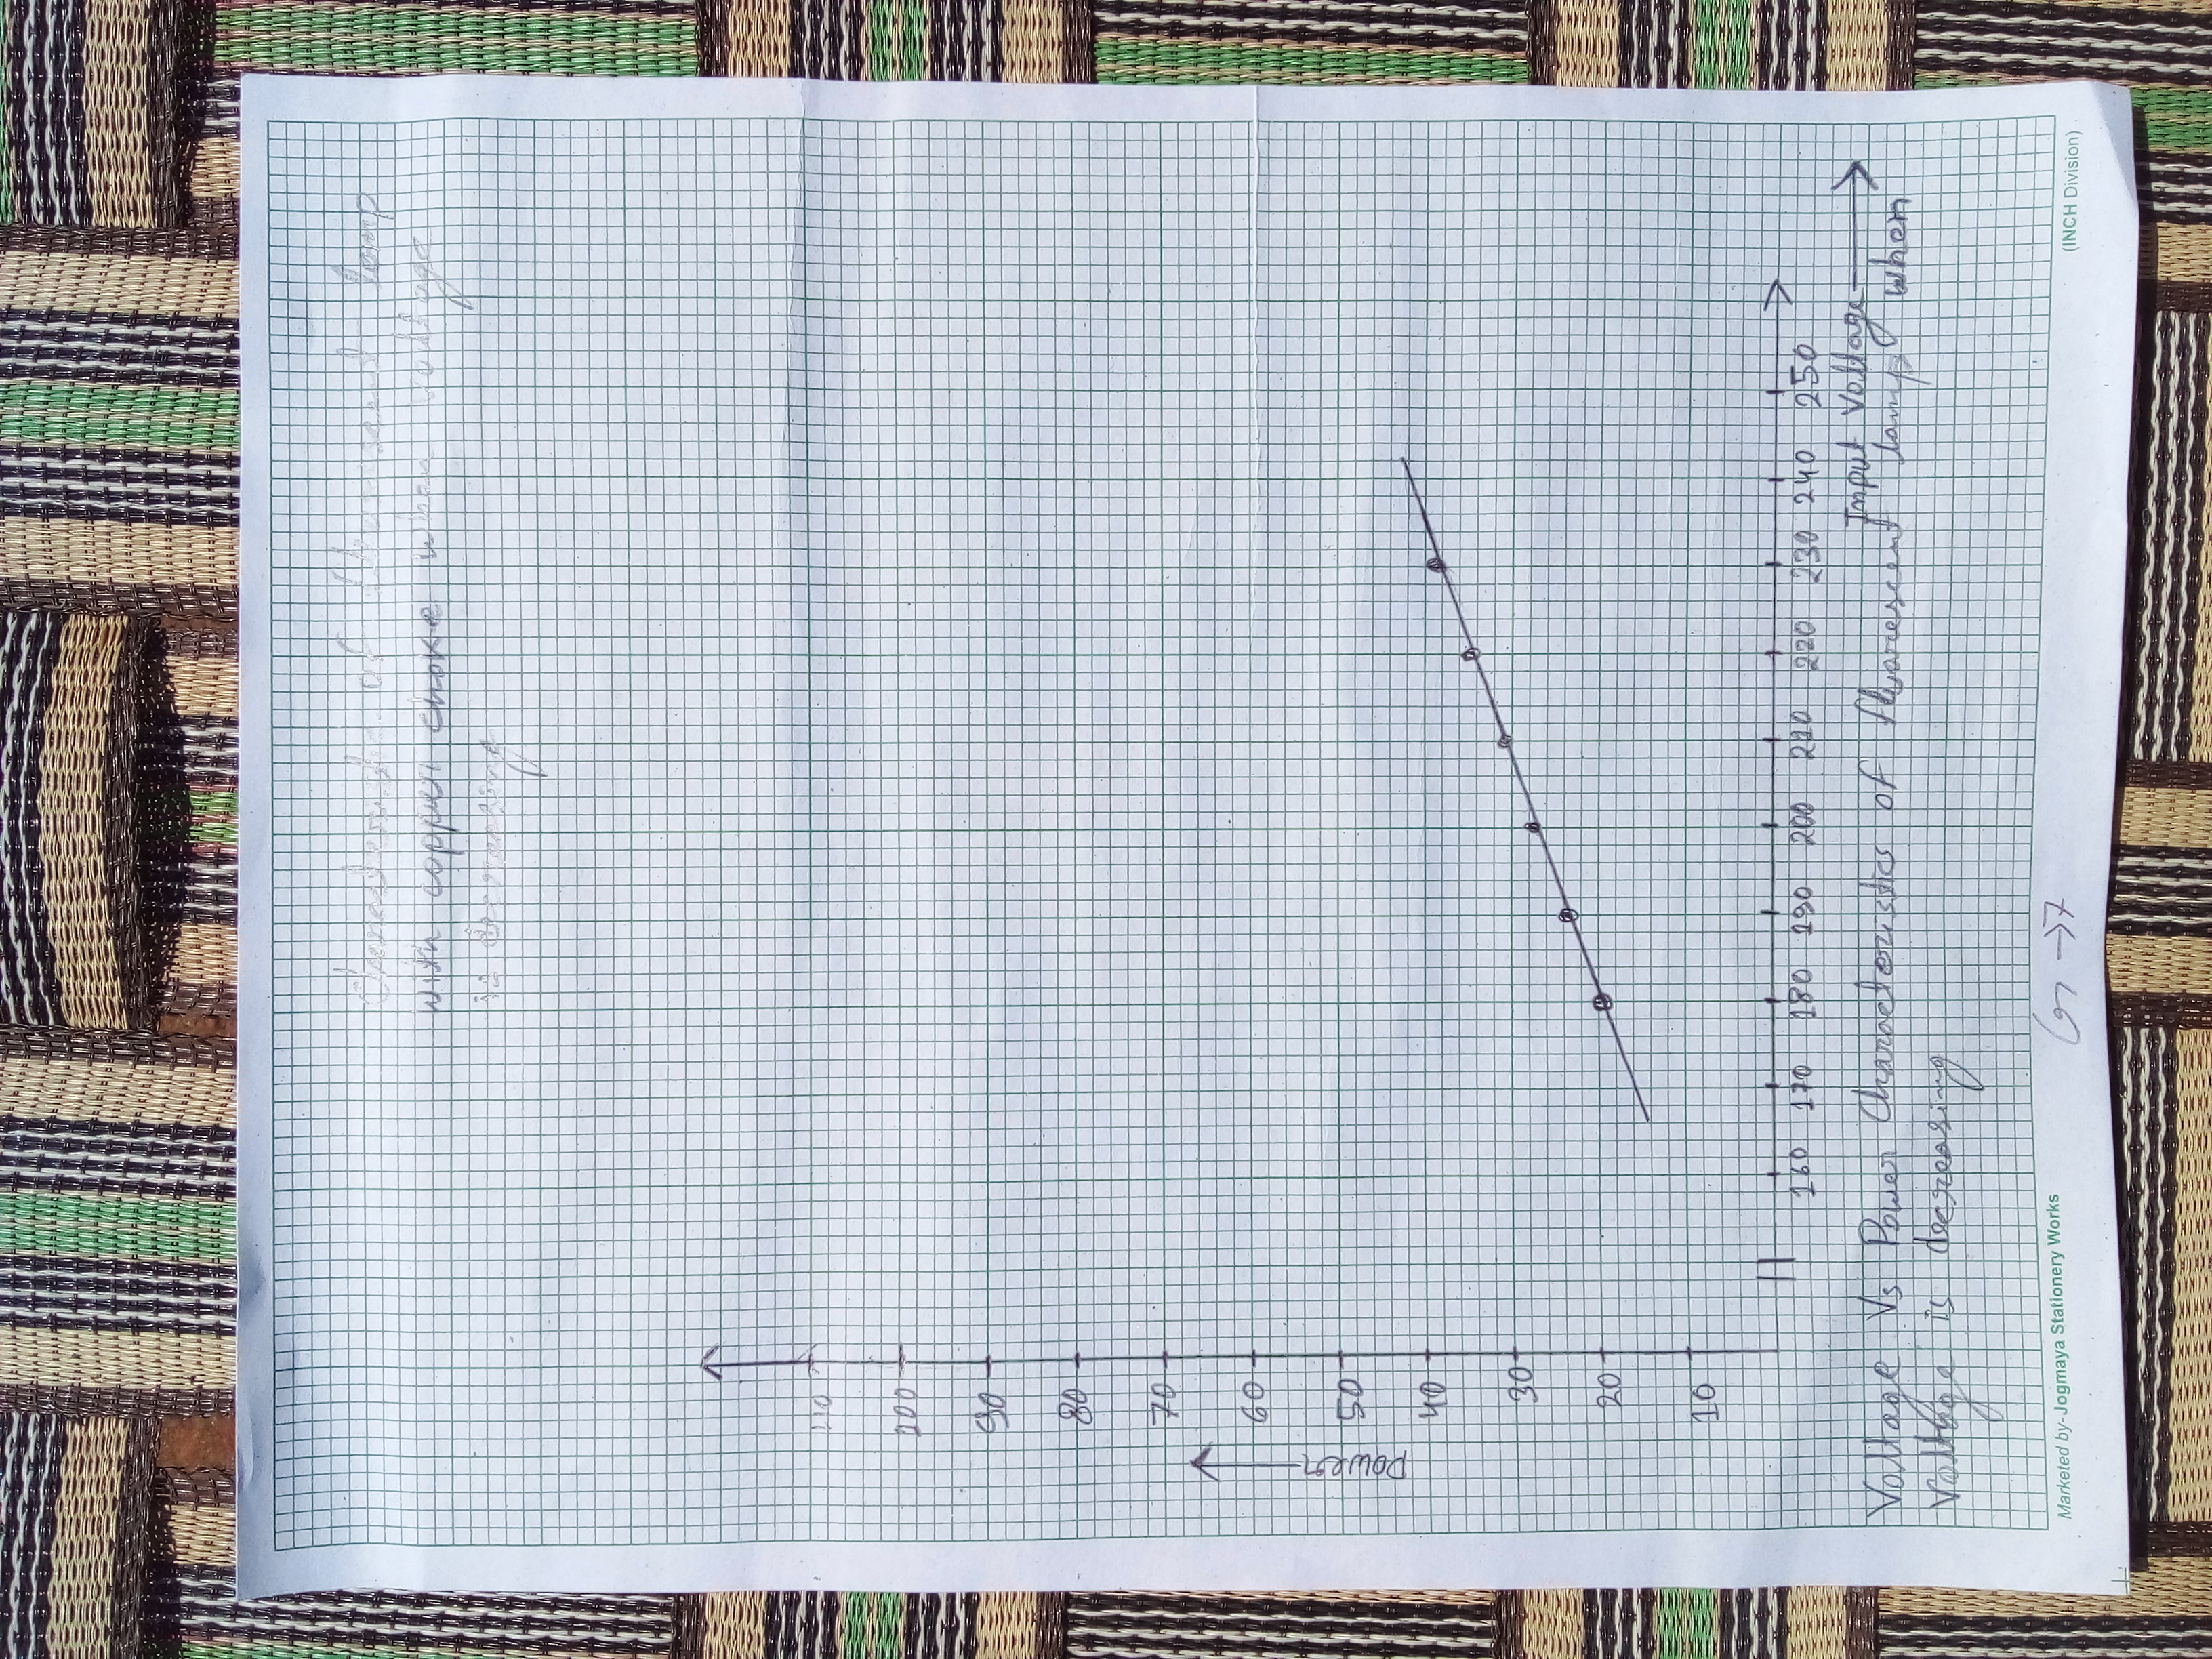 Characteristic of fluorescent lamp
with copper choke when voltage
is decreasing
110
100
90
80
70
60
50
40
30
20
10
Power
160 170 180 190 200 210 220 230 240 250
Input Voltage
Voltage Vs Power Characteristics of fluorescent lamp when
Voltage is decreasing
Marketed by- Jogmaya Stationery Works
G →7
(INCH Division)